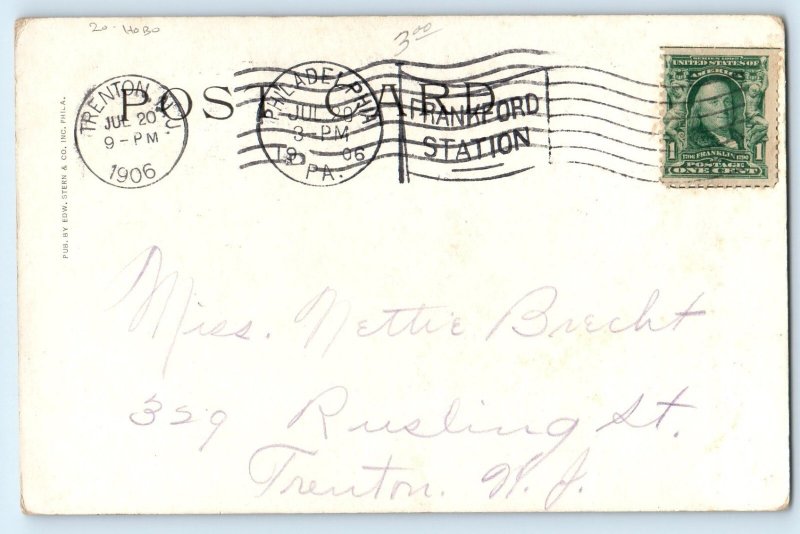 20- HOBO
3.00
POST CARD
TRENTON, N.J.
JUL 20
9-PM
1906
PHILADELPHIA
JUL 20
3-PM
1906
PA.
FRANKFORD
STATION
UNITED STATES OF
AMERICA
1706 FRANKLIN 1790
1 1
POSTAGE
ONE CENT
PUB. BY EDW. STERN & CO., INC. PHILA.
Miss. Nettie Brecht
329 Rusling St.
Trenton. N. J.